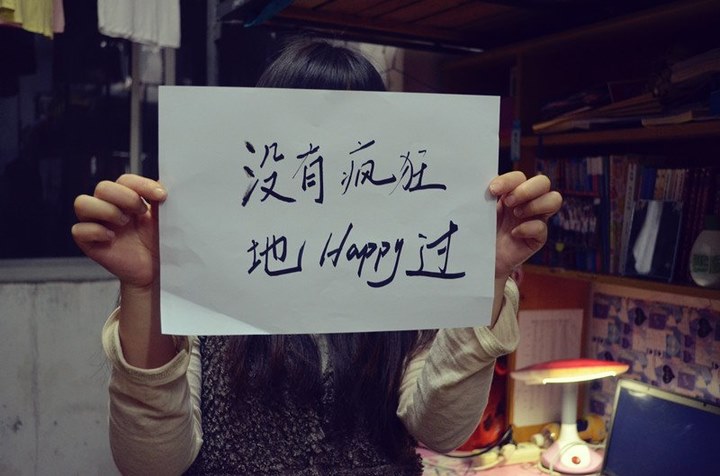 没有疯狂
地Happy过